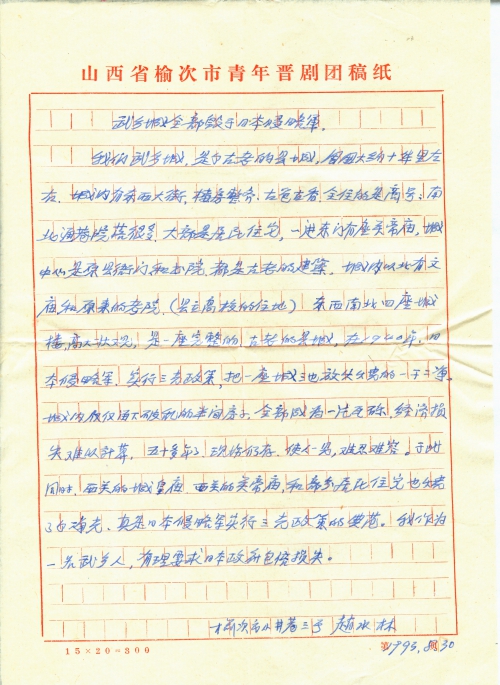 山西省榆次市青年晋剧团稿纸
武乡城全部毁于日本侵略军。
我的武乡城，是个古老的县城，周围大约十华里左
右。城内有东西大街，楼房整齐，古色古香，全住的是商号，南
北通巷院落很多，大部是居民住宅，一进东门有座关帝庙，城
中心是原县衙门和书院，都是古老的建筑，城内以北有文
庙和原来的考院，（县立高校的住地）东西南北四座城
楼，高大壮观，是一座完整的，古老的县城，在一九四〇年，日
本侵略军，实行三光政策，把一座城三把放火火烧的一干二净，
城内仅仅留下破乱的半间房子，全部成为一片瓦砾，经济损
失难以计算，五十多年了，现仍存，使人难忍难容。于此
同时，西关的城隍庙，西关的关帝庙，和部分居民住宅也火烧
了，真是日本侵略军实行三光政策的典范。我作为
一名武乡人，有理要求日本政府包赔损失。
榆次市小井巷三号 赵水林
1993.8.30
15×20=300
第 页